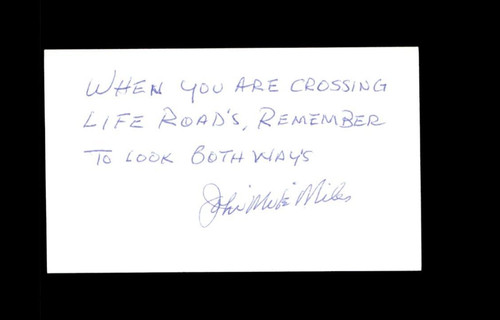 WHEN YOU ARE CROSSING
LIFE ROAD'S, REMEMBER
TO LOOK BOTH WAY'S
John "Mike" Miles